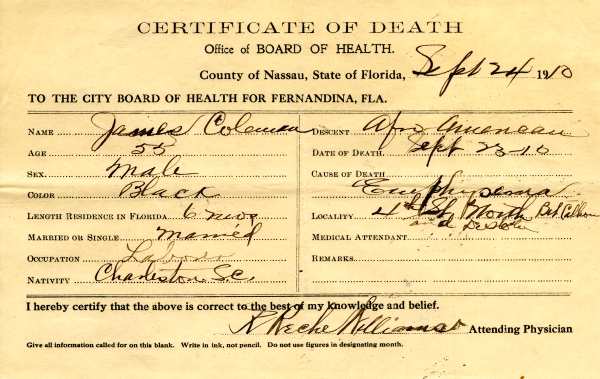 CERTIFICATE OF DEATH
Office of BOARD OF HEALTH.
County of Nassau, State of Florida, Sept 24 1910
TO THE CITY BOARD OF HEALTH FOR FERNANDINA, FLA.
NAME James Coleman
AGE 55
SEX. Male
COLOR Black
LENGTH RESIDENCE IN FLORIDA 6 mos
MARRIED OR SINGLE Married
OCCUPATION Labor
NATIVITY Charleston S.C.
DESCENT Afro American
DATE OF DEATH. Sept 23-10
CAUSE OF DEATH
Emphysema
LOCALITY 4th St North Bet Calhoun
and Desoto
MEDICAL ATTENDANT
REMARKS
I hereby certify that the above is correct to the best of my knowledge and belief.
Williams Attending Physician
Give all information called for on this blank. Write in ink, not pencil. Do not use figures in designating month.